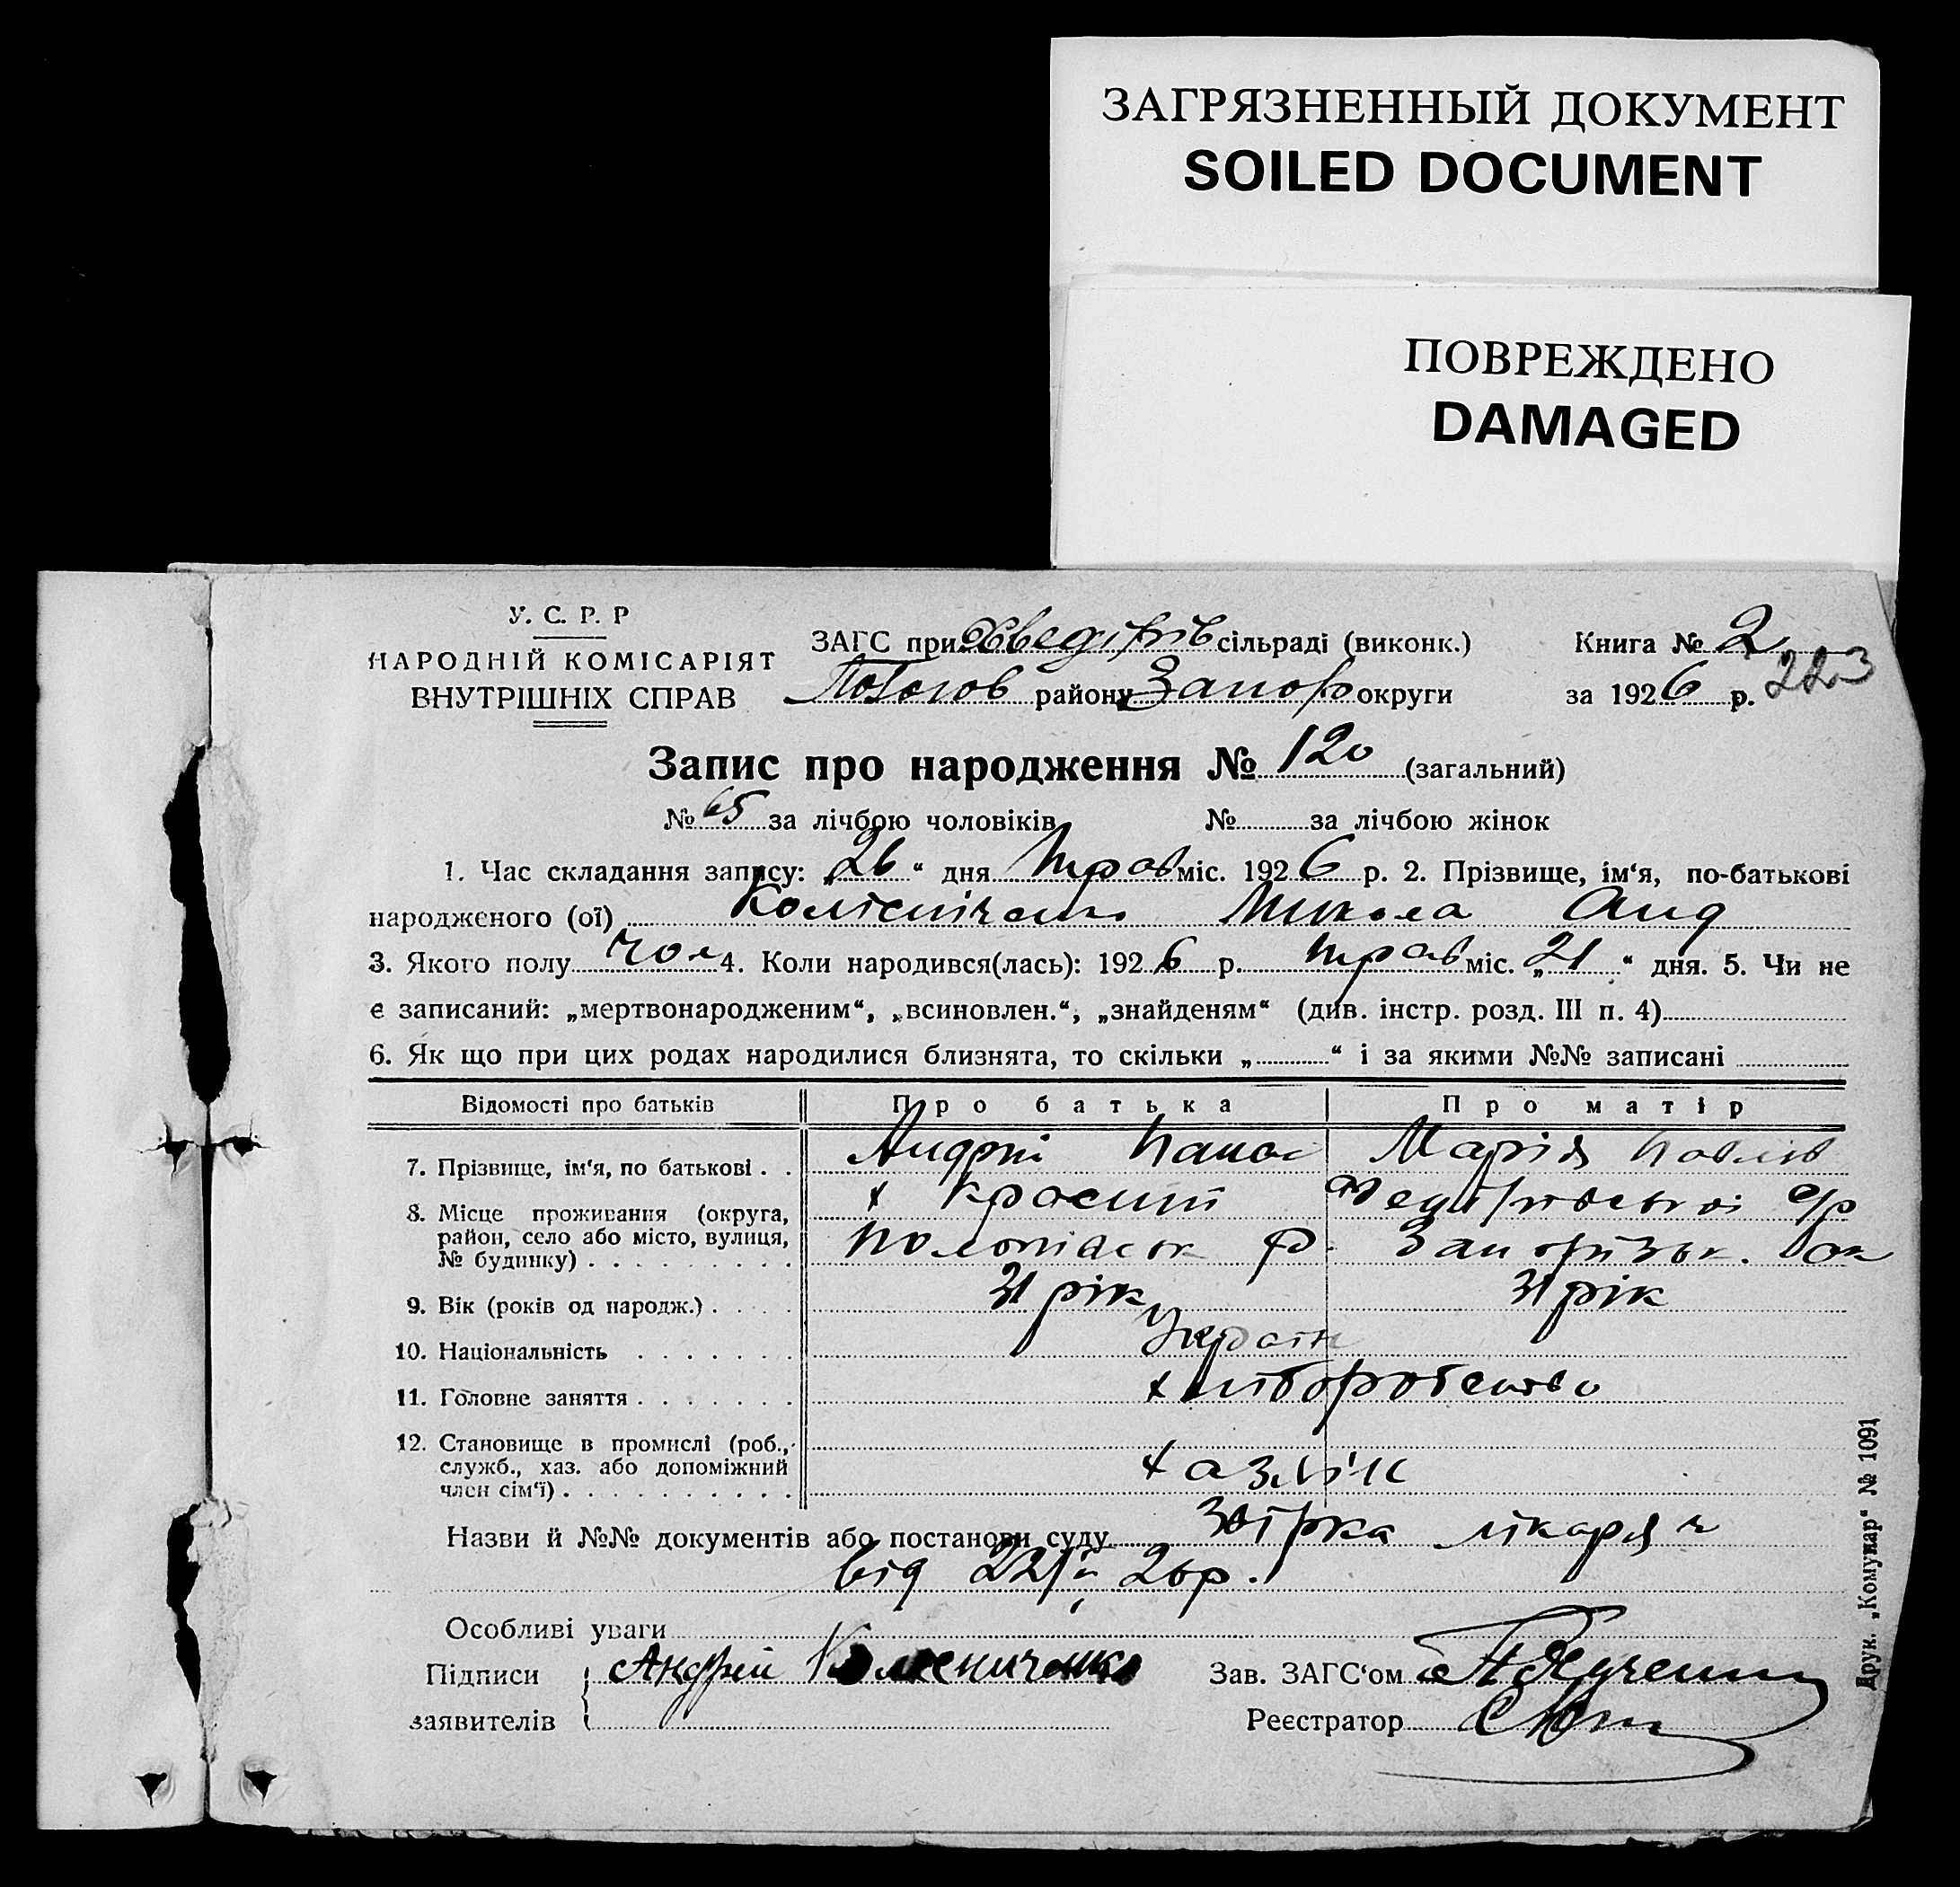 ЗАГРЯЗНЕННЫЙ ДОКУМЕНТ
SOILED DOCUMENT
ПОВРЕЖДЕНО
DAMAGED
У. С. Р. Р
НАРОДНІЙ КОМІСАРІЯТ
ВНУТРІШНІХ СПРАВ
ЗАГС при сільраді (виконк.)
району Запор округи
Книга № 2
за 1926 р. 223
Запис про народження № 120 (загальний)
№ 65 за лічбою чоловіків № за лічбою жінок
1. Час складання запису: „26“ дня трав міс. 1926 р. 2. Прізвище, ім‘я, по-батькові
народженого (ої) Колісніченко Микола Анд
3. Якого полу чол 4. Коли народився(лась): 1926 р. трав міс. „21“ дня. 5. Чи не
є записаний: „мертвонародженим“, „всиновлен.“, „знайденям“ (див. інстр. розд. III п. 4)
6. Як що при цих родах народилися близнята, то скільки „ “ і за якими №№ записані
Відомості про батьків Про батька Про матір
7. Прізвище, ім‘я, по батькові . . Андрій Панас Марія Павлів
8. Місце проживання (округа,
район, село або місто, вулиця,
№ будинку) . . . . . . . . . Р. Запорізьк. ок
9. Вік (років од народж.) . . . . 31 рік 31 рік
10. Національність . . . . . . . Україн
11. Головне заняття . . . . . . . хліборобство
12. Становище в промислі (роб.,
служб., хаз. або допоміжний
член сім‘ї) . . . . . . . . . . хазяїн
Назви й №№ документів або постанови суду лікаря
від 22/V 26р.
Особливі уваги
Підписи Андрей Колесниченко Зав. ЗАГС‘ом
заявителів Реєстратор
Друк. „Комунар“ № 1091